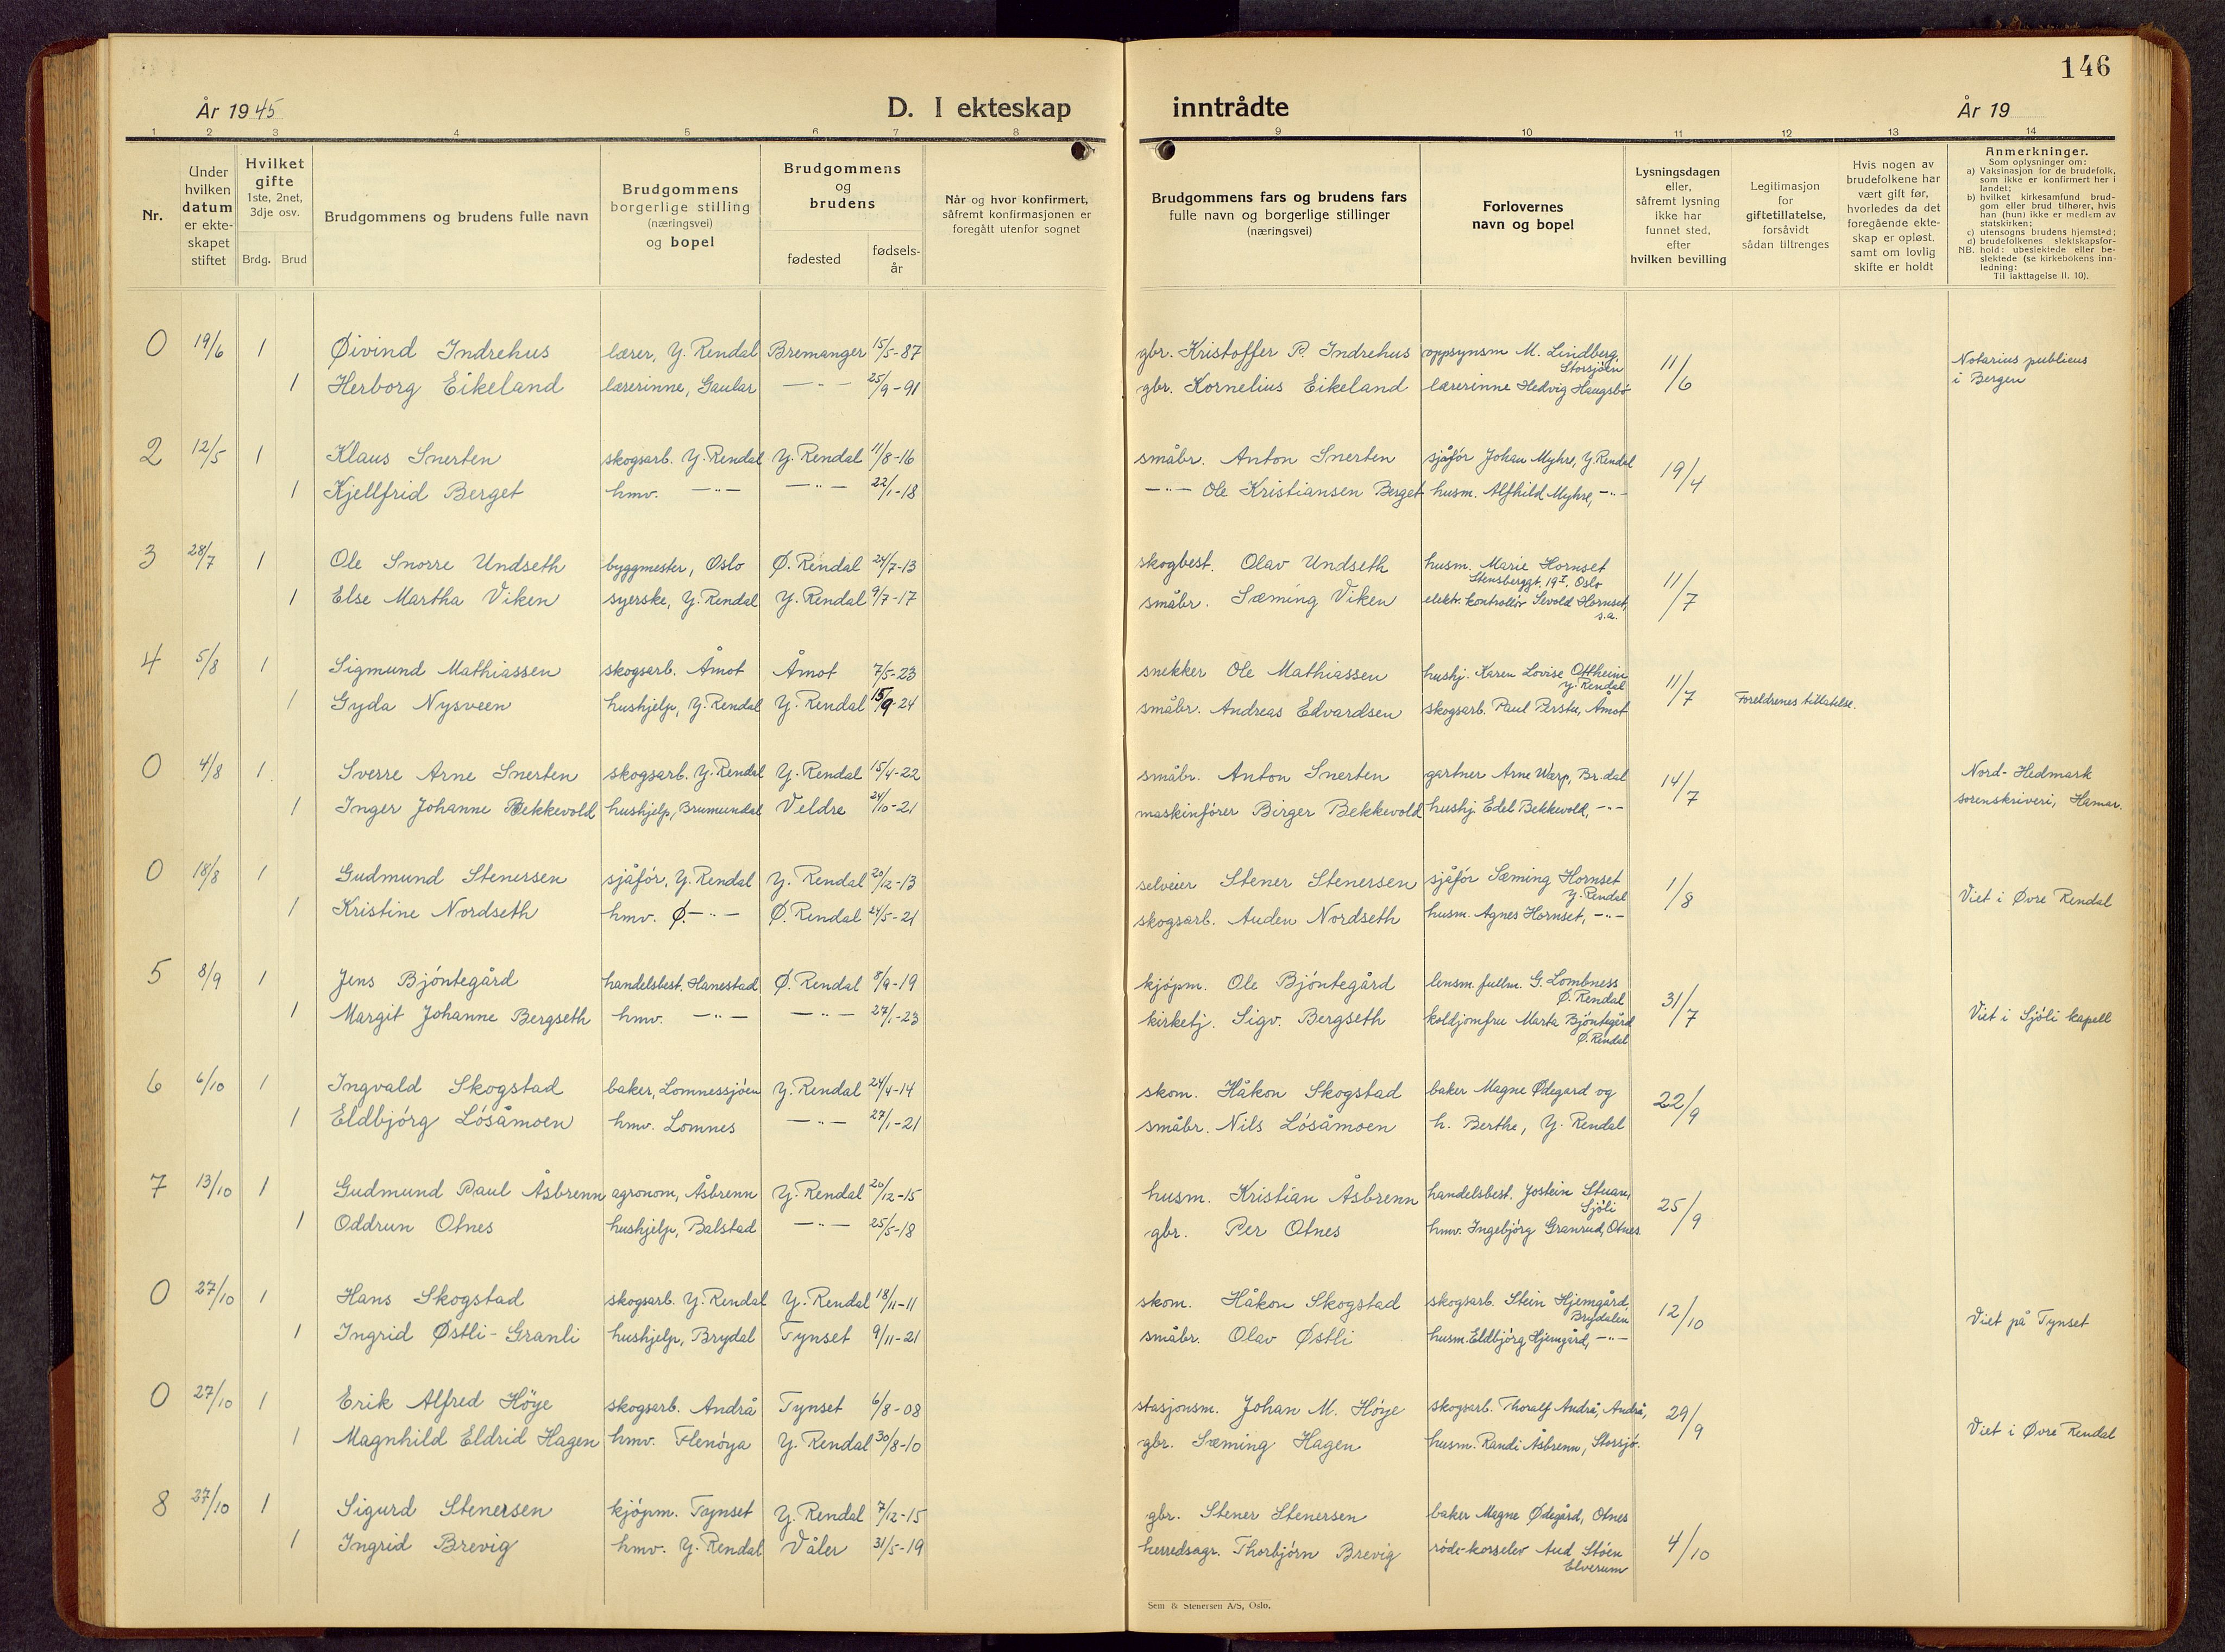 146
År 1945
D. I ekteskap
inntrådte
År 19
1 2 3 4 5 6 7 8 9 10 11 12 13 14
Nr.
Under
hvilken
datum
er ekte-
skapet
stiftet
Hvilket
gifte
1ste, 2net,
3dje osv.
Brdg. Brud
Brudgommens og brudens fulle navn
Brudgommens
borgerlige stilling
(næringsvei)
og bopel
Brudgommens
og
brudens
fødested
fødsels-
år
Når og hvor konfirmert,
såfremt konfirmasjonen er
foregått utenfor sognet
Brudgommens fars og brudens fars
fulle navn og borgerlige stillinger
(næringsvei)
Forlovernes
navn og bopel
Lysningsdagen
eller,
såfremt lysning
ikke har
funnet sted,
efter
hvilken bevilling
Legitimasjon
for
giftetillatelse,
forsåvidt
sådan tiltrenges
Hvis nogen av
brudefolkene har
vært gift før,
hvorledes da det
foregående ekte-
skap er opløst,
samt om lovlig
skifte er holdt
Anmerkninger.
Som oplysninger om:
a) Vaksinasjon for de brudefolk,
som ikke er konfirmert her i
landet;
b) hvilket kirkesamfund brud-
gom eller brud tilhører, hvis
han (hun) ikke er medlem av
statskirken;
c) utensogns brudens hjemsted;
d) brudefolkenes slektskapsfor-
hold: ubeslektede eller be-
slektede (se kirkebokens inn-
ledning:
NB. Til iakttagelse II. 10).
0 19/6 1 Øivind Indrehus lærer, Y. Rendal Bremanger 15/5-87 gbr. Kristoffer P. Indrehus oppsynsm M. Lindberg, Storsjøen 11/6 Notarius publicus
1 Herborg Eikeland lærerinne, Gaular —"— 25/9-91 gbr. Kornelius Eikeland lærerinne Hedvig Haugsbø i Bergen
2 12/5 1 Klaus Snerten skogsarb. Y. Rendal Y. Rendal 11/8-16 småbr. Anton Snerten sjåfór Johan Myhre, Y. Rendal 19/4
1 Kjellfrid Berget hmv. —"— —"— 22/1-18 —"— Ole Kristiansen Berget husm. Alfhild Myhre, —"—
3 28/7 1 Ole Snorre Undseth byggmester, Oslo Ø. Rendal 24/7-13 skogbest. Olav Undseth husm. Marie Hornset Stensberggt. 19 I, Oslo 11/7
1 Else Martha Viken syerske, Y. Rendal Y. Rendal 9/7-17 småbr. Sæming Viken elektr. kontrollör Sevold Hornset, s.a.
4 5/8 1 Sigmund Mathiassen skogsarb. Åmot Åmot 7/5-23 snekker Ole Mathiassen hushj. Karen Lovise Y. Rendal 11/7
1 Gyda Nysveen hushjelp, Y. Rendal Y. Rendal 15/9-24 småbr. Andreas Edvardsen skogsarb. Paul Åmot Foreldrenes tillatelse.
0 4/8 1 Sverre Arne Snerten skogsarb. Y. Rendal Y. Rendal 15/4-22 småbr. Anton Snerten gartner Arne Warp, Br.dal 14/7 Nord-Hedmark
1 Inger Johanne Bekkevold hushjelp, Brumundal Veldre 24/10-21 maskinfórer Birger Bekkevold hushj Edel Bekkevold, —"— sorenskriveri, Hamar.
0 18/8 1 Gudmund Stenersen sjåfór, Y. Rendal Y. Rendal 20/12-13 selveier Stener Stenersen sjåfór Sæming Hornset Y. Rendal 1/8
1 Kristine Nordseth hmv. Ø. —"— Ø. Rendal 24/5-21 skogsarb. Auden Nordseth husm. Agnes Hornset, —"— Viet i Øvre Rendal
5 8/9 1 Jens Bjóntegård handelsbest. Hanestad Ø. Rendal 8/9-19 kjópm. Ole Bjóntegård lensm. fullm. G. Lombness Ø. Rendal 31/7
1 Margit Johanne Bergseth hmv. —"— —"— 27/1-23 kirketj. Sigv. Bergseth koldjomfru Marta Bjóntegård Ø. Rendal Viet i Sjóli kapell
6 6/10 1 Ingvald Skogstad baker, Lomnessjóen Y. Rendal 24/4-14 skom. Håkon Skogstad baker Magne Ødegard og 22/9
1 Eldbjórg Lósåmoen hmv. Lomnes —"— 27/1-21 småbr. Nils Lósåmoen h. Berthe, Y. Rendal
7 13/10 1 Gudmund Paul Åsbrenn agronom, Åsbrenn Y. Rendal 20/12-15 husm. Kristian Åsbrenn handelsbest. Jostein Stuan, Sjóli 25/9
1 Oddrun Otnes hushjelp, Balstad —"— 25/5-18 gbr. Per Otnes hmv. Ingebjórg Granrud, Otnes
0 27/10 1 Hans Skogstad skogsarb. Y. Rendal Y. Rendal 18/11-11 skom. Håkon Skogstad skogsarb. Stein Hjemgård, Brydalen 12/10
1 Ingrid Østli-Granli hushjelp, Brydal Tynset 9/11-21 småbr. Olav Østli husm. Eldbjórg Hjemgård, —"— Viet på Tynset
0 27/10 1 Erik Alfred Höye skogsarb. Andrå Tynset 6/8-08 stasjonsm. Johan M. Höye skogsarb. Thoralf Andrå, Andrå, 29/9
1 Magnhild Eldrid Hagen hmv. Flenóya Y. Rendal 30/8-10 gbr. Sæming Hagen husm. Randi Åsbrenn, Storsjö. Viet i Øvre Rendal
8 27/10 1 Sigurd Stenersen kjópm. Tynset Y. Rendal 7/12-15 gbr. Stener Stenersen baker Magne Ødegård, Otnes 4/10
1 Ingrid Brevig hmv. Y. Rendal Våler 31/5-19 herredsagr. Thorbjórn Brevig róde-korselev Aud Stóen Elverum
Sem & Stenersen A/S, Oslo.